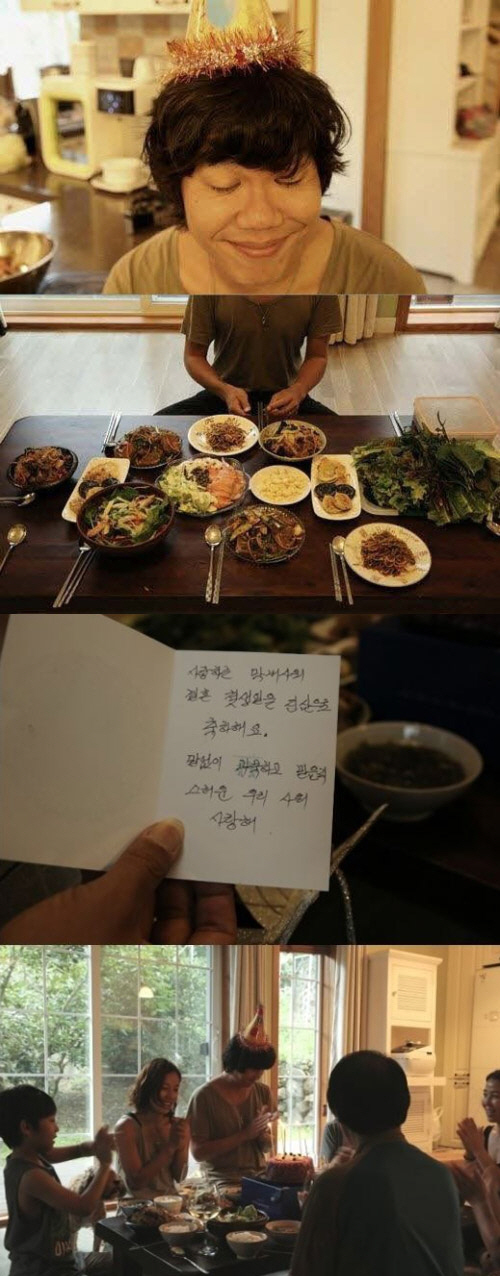 사랑하는 막내사위
결혼 첫생일은 진심으로
축하해요.
말없이 하고
우리 사위
사랑해